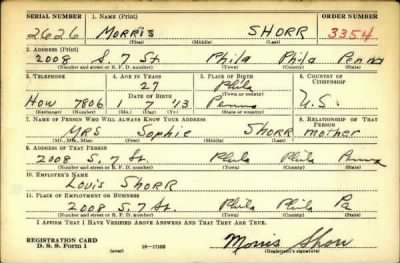 SERIAL NUMBER 1. NAME (Print) ORDER NUMBER
2626 MORRIS SHORR 3354
(First) (Middle) (Last)
2. ADDRESS (Print)
2008 S. 7 St Phila Phila Penna
(Number and street or R. F. D. number) (Town) (County) (State)
3. TELEPHONE 4. AGE IN YEARS 5. PLACE OF BIRTH 6. COUNTRY OF CITIZENSHIP
27 Phila
DATE OF BIRTH (Town or county)
How 7806 1 7 '13 Penna U.S.
(Exchange) (Number) (Mo.) (Day) (Yr.) (State or country)
7. NAME OF PERSON WHO WILL ALWAYS KNOW YOUR ADDRESS 8. RELATIONSHIP OF THAT PERSON
MRS Sophie SHORR mother
(Mr., Mrs., Miss) (First) (Middle) (Last)
9. ADDRESS OF THAT PERSON
2008 S. 7 St. Phila Phila Penna
(Number and street or R. F. D. number) (Town) (County) (State)
10. EMPLOYER'S NAME
Louis SHORR
11. PLACE OF EMPLOYMENT OR BUSINESS
2008 S. 7 St. Phila Phila Pa
(Number and street or R. F. D. number) (Town) (County) (State)
I AFFIRM THAT I HAVE VERIFIED ABOVE ANSWERS AND THAT THEY ARE TRUE.
REGISTRATION CARD
D. S. S. Form 1 (over) 16-17105 Morris Shorr
(Registrant's signature)